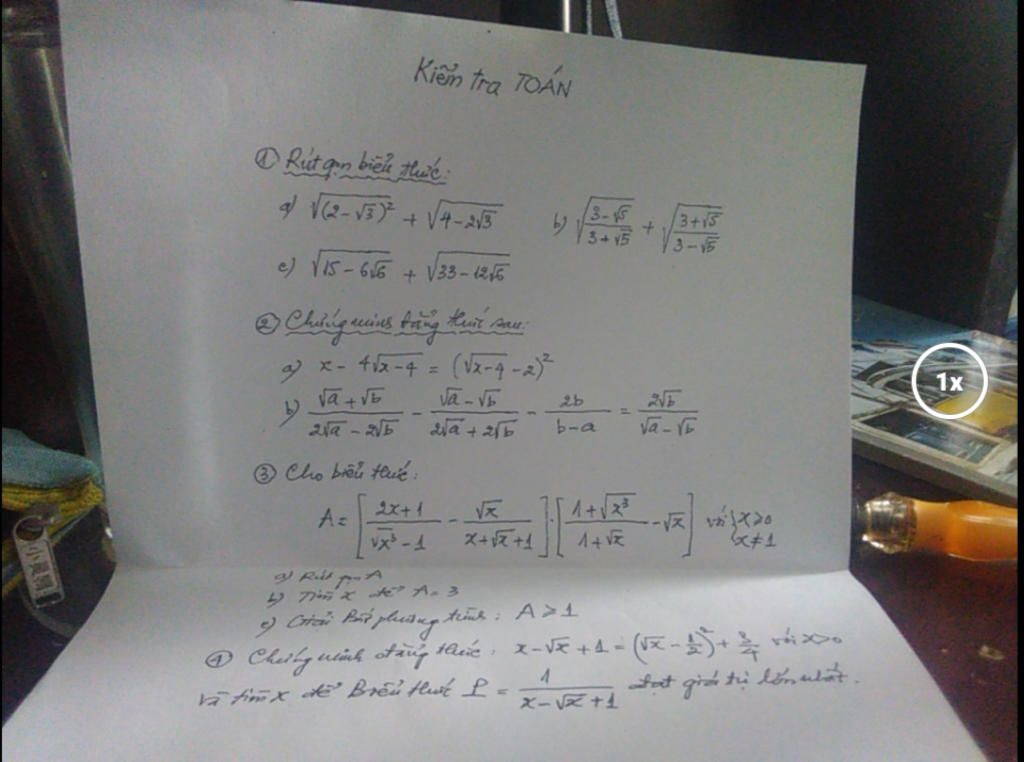 Kiểm tra TOÁN
① Rút gọn biểu thức:
a) √(2-√3)² + √4-2√3 b) √3-√5/3+√5 + √3+√5/3-√5
c) √15-6√6 + √33-12√6
② Chứng minh đẳng thức sau:
a) x - 4√x-4 = (√x-4 - 2)²
b) √a+√b/2√a-2√b - √a-√b/2√a+2√b - 2b/b-a = 2√b/√a-√b
③ Cho biểu thức:
A = [2x+1/√x³-1 - √x/x+√x+1]·[1+√x³/1+√x - √x] với {x≥0 x≠1
a) Rút gọn A
b) Tìm x để A=3
c) Giải Bất phương trình: A ≥ 1
④ Chứng minh đẳng thức: x-√x+1 = (√x - 1/2)² + 3/4 với x>0
và tìm x để Biểu thức P = 1/x-√x+1 đạt giá trị lớn nhất.
1x
小灵网